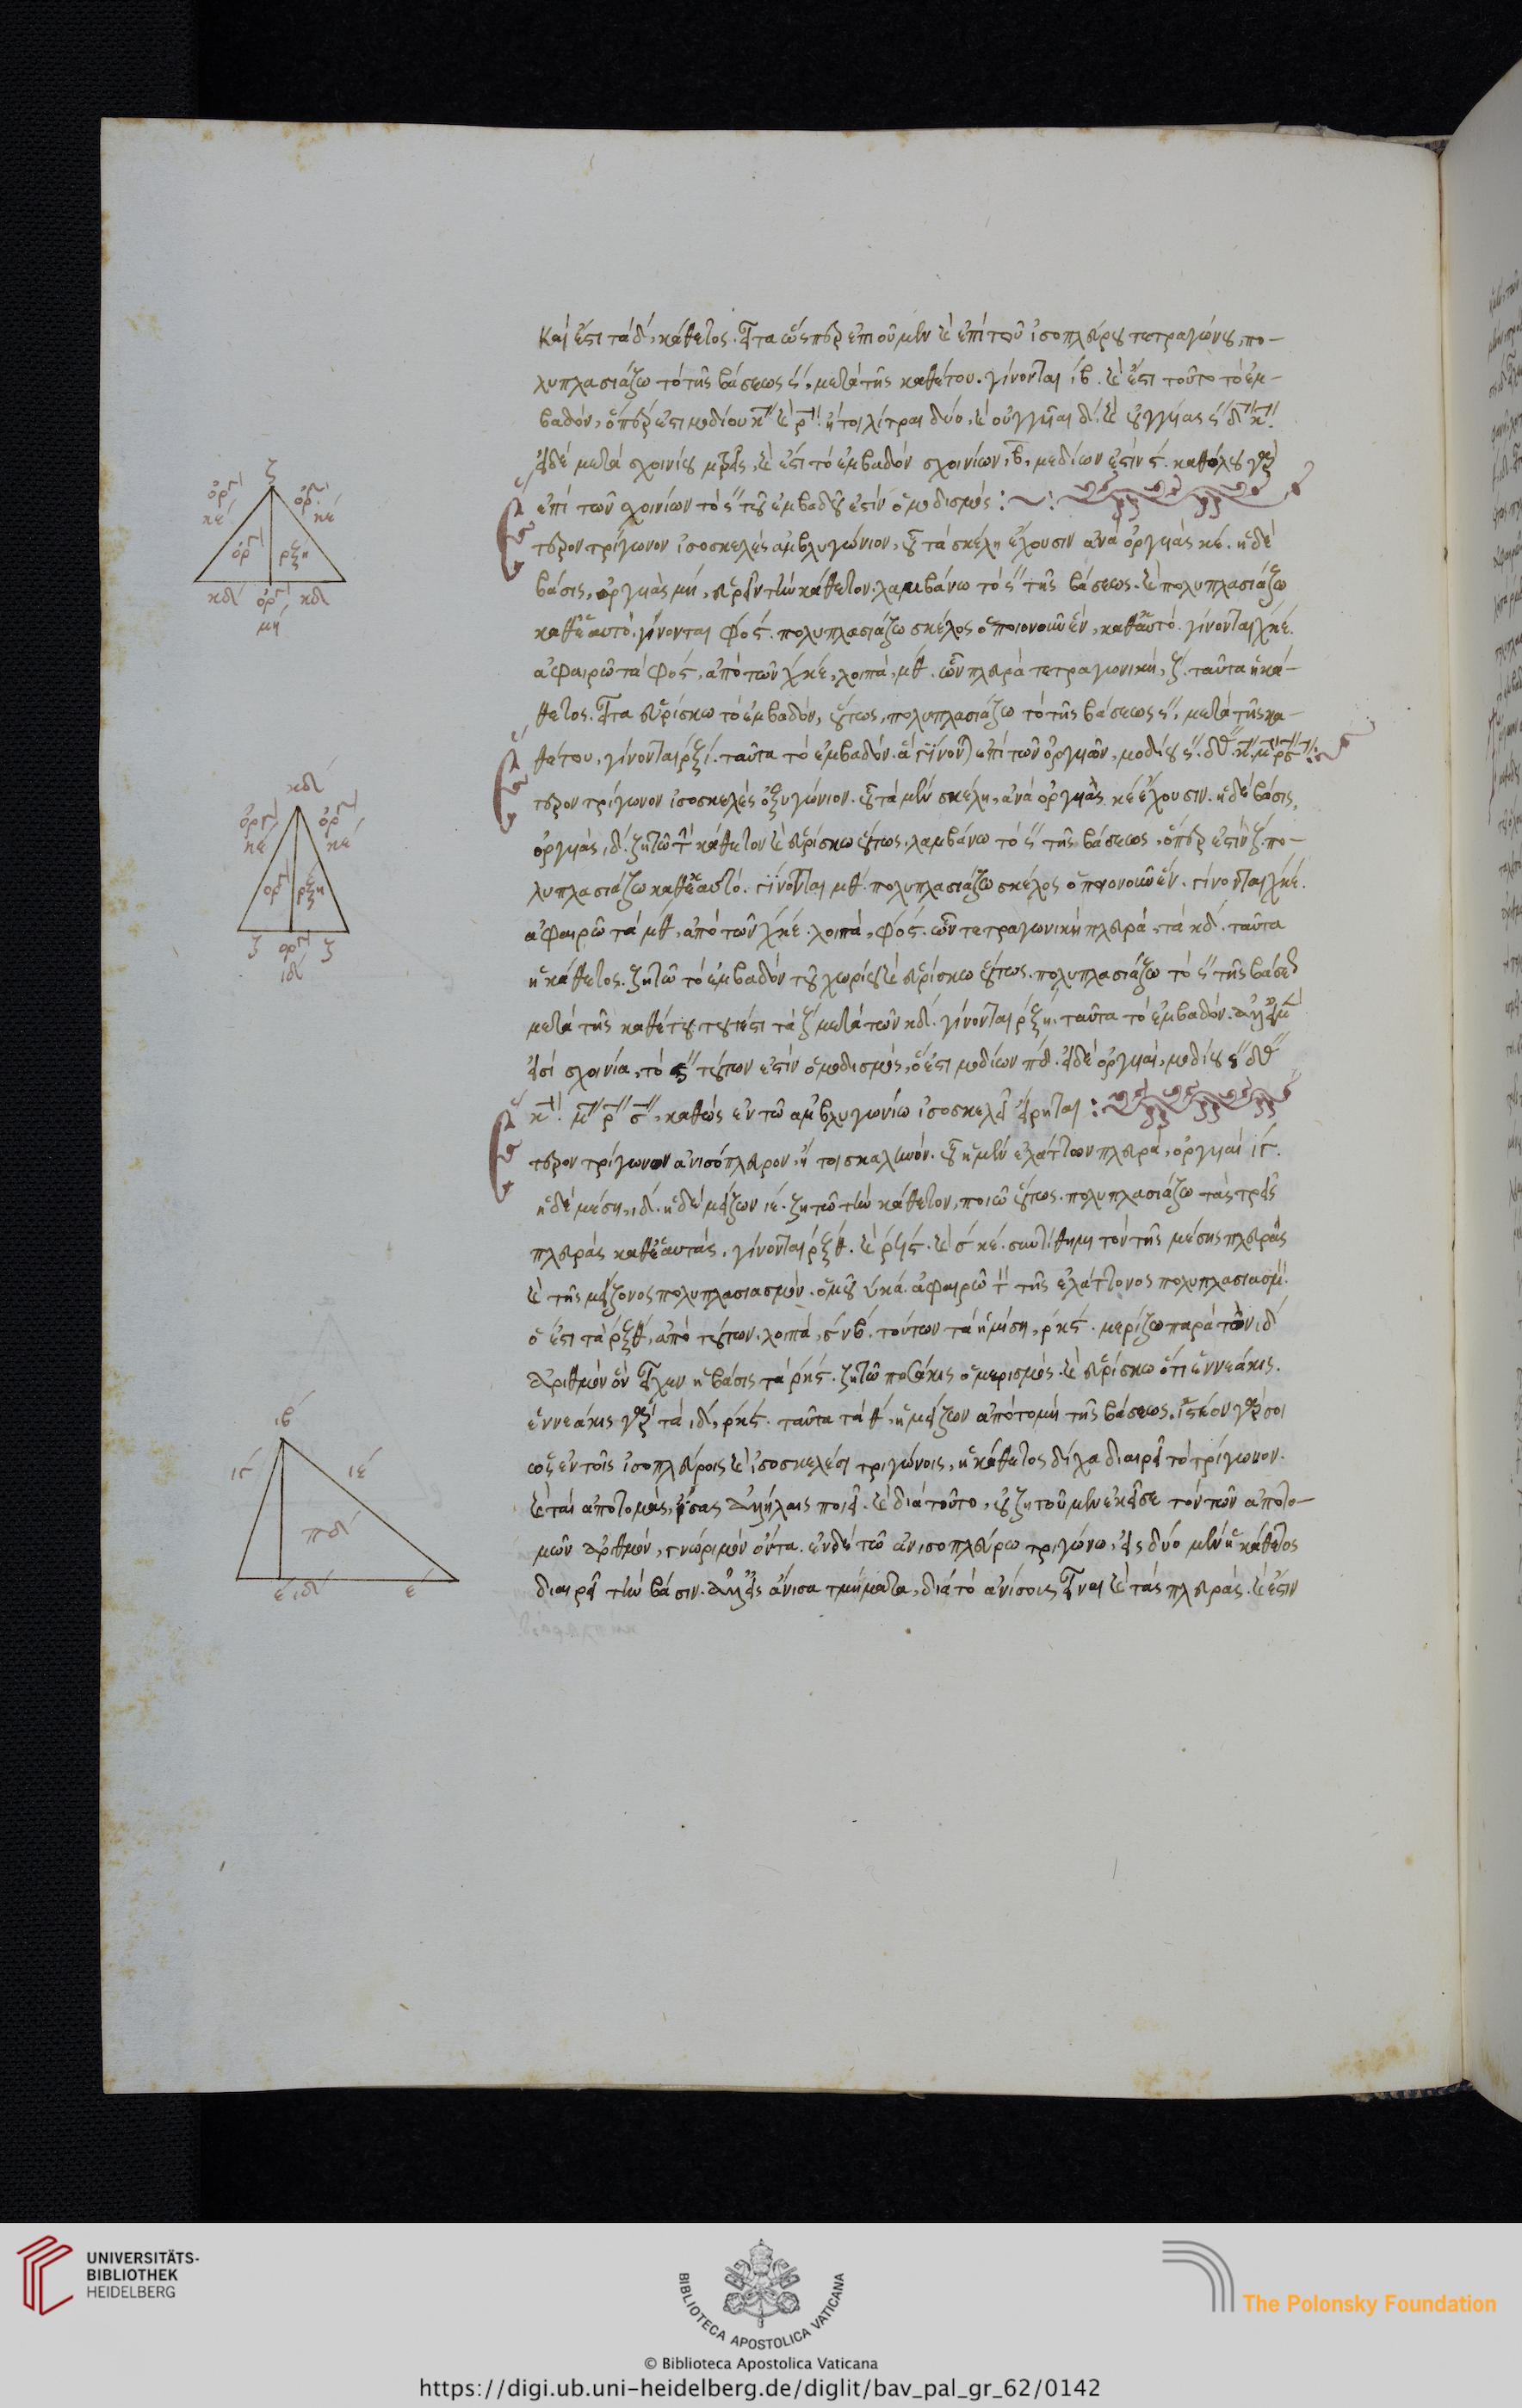 καί ἐστι τὰ δ, κάθετος. εἶτα ὥσπερ ἐποιοῦμεν καὶ ἐπὶ τοῦ ἰσοπλεύρου τετραγώνου, πο-
λυπλασιάζω τὸ τῆς βάσεως 𐅵, μετὰ τῆς καθέτου. γίνονται ιβ. καὶ ἔστι τοῦτο τὸ ἐμ-
βαδόν, ὅπερ ἐστὶ μοδίου ἤτοι λίτραι δύο, καὶ οὐγγίαι δ. καὶ οὐγγίας
εἰ δὲ μετὰ σχοινίου μετρεῖς, καὶ ἔστι τὸ ἐμβαδὸν σχοινίων, ιβ, μοδίων ἐστὶν ϛ. καθόλου γὰρ
ἐπὶ τῶν σχοινίων τὸ 𐅵 τοῦ ἐμβαδοῦ ἐστὶν ὁ μοδισμός :
ἕτερον τρίγωνον ἰσοσκελὲς ἀμβλυγώνιον, οὗ τὰ σκέλη ἔχουσιν ἀνὰ ὀργυιὰς κε. ἡ δὲ
βάσις, ὀργυιὰς μη, εὑρεῖν τὴν κάθετον. λαμβάνω τὸ 𐅵 τῆς βάσεως. καὶ πολυπλασιάζω
καθ' ἑαυτό. γίνονται φοϛ. πολυπλασιάζω σκέλος ὁποιονοῦν ἕν, καθ' ἑαυτό. γίνονται χκε.
ἀφαιρῶ τὰ φοϛ, ἀπὸ τῶν χκε, λοιπὰ, μθ. ὧν πλευρὰ τετραγωνική, ζ. ταῦτα ἡ κά-
θετος. εἶτα εὑρίσκω τὸ ἐμβαδόν, οὕτως, πολυπλασιάζω τὸ τῆς βάσεως 𐅵, μετὰ τῆς κα-
θέτου, γίνονται ρξη. ταῦτα τὸ ἐμβαδόν. ἃ γίνονται ἐπὶ τῶν ὀργυιῶν, μοδίου
ἕτερον τρίγωνον ἰσοσκελὲς ὀξυγώνιον. οὗ τὰ μὲν σκέλη, ἀνὰ ὀργυιὰς κε ἔχουσιν. ἡ δὲ βάσις,
ὀργυιὰς, ιδ. ζητῶ τὴν κάθετον καὶ εὑρίσκω οὕτως. λαμβάνω τὸ 𐅵 τῆς βάσεως, ὅπερ ἐστὶν ζ. πο-
λυπλασιάζω καθ' ἑαυτό. γίνονται μθ. πολυπλασιάζω σκέλος ὁποιονοῦν ἕν. γίνονται χκε.
ἀφαιρῶ τὰ μθ, ἀπὸ τῶν χκε. λοιπὰ, φοϛ. ὧν τετραγωνικὴ πλευρὰ, τὰ κδ. ταῦτα
ἡ κάθετος. ζητῶ τὸ ἐμβαδὸν τοῦ χωρίου καὶ εὑρίσκω οὕτως. πολυπλασιάζω τὸ 𐅵 τῆς βάσεως
μετὰ τῆς καθέτου τουτέστι τὰ ζ μετὰ τῶν κδ. γίνονται ρξη. ταῦτα τὸ ἐμβαδόν. ἀλλ' εἰ μὲν
εἰσὶ σχοινία, τὸ 𐅵 τούτων ἐστὶν ὁ μοδισμός, ὅ ἐστι μοδίων πδ. εἰ δὲ ὀργυιαί, μοδίου
καθὼς ἐν τῷ ἀμβλυγωνίῳ ἰσοσκελεῖ εἴρηται :
ἕτερον τρίγωνον ἀνισόπλευρον, ἤτοι σκαληνόν. οὗ ἡ μὲν ἐλάττων πλευρά, ὀργυιαὶ ιγ.
ἡ δὲ μέση, ιδ. ἡ δὲ μείζων ιε. ζητῶ τὴν κάθετον, ποιῶ οὕτως. πολυπλασιάζω τὰς τρεῖς
πλευρὰς καθ' ἑαυτάς, γίνονται ρξθ. καὶ ρϟϛ. καὶ σκε. συντίθημι τὸν τῆς μέσης πλευρᾶς
καὶ τῆς μείζονος πολυπλασιασμόν. ὁμοῦ υκα. ἀφαιρῶ τὸν τῆς ἐλάττονος πολυπλασιασμόν.
ὅ ἐστι τὰ ρξθ, ἀπὸ τούτων. λοιπὰ, σνβ. τούτων τὰ ἡμίση, ρκϛ. μερίζω παρὰ τὸν ιδ
ἀριθμὸν ὃν εἶχεν ἡ βάσις τὰ ρκϛ. ζητῶ ποσάκις ὁ μερισμός. καὶ εὑρίσκω ὅτι ἐννεάκις.
ἐννεάκις γὰρ τὰ ιδ, ρκϛ. ταῦτα τὰ θ, ἡ μείζων ἀποτομὴ τῆς βάσεως. ἰστέον γάρ σοι
ὡς ἐν τοῖς ἰσοπλεύροις καὶ ἰσοσκελέσι τριγώνοις, ἡ κάθετος δίχα διαιρεῖ τὸ τρίγωνον.
καὶ τὰς ἀποτομὰς, ἴσας ἀλλήλαις ποιεῖ. καὶ διὰ τοῦτο, οὐ ζητοῦμεν ἐκεῖσε τὸν τῶν ἀποτο-
μῶν ἀριθμόν, γνώριμον ὄντα. ἐν δὲ τῷ ἀνισοπλεύρῳ τριγώνῳ, εἰς δύο μὲν ἡ κάθετος
διαιρεῖ τὴν βάσιν. ἀλλ' εἰς ἄνισα τμήματα, διὰ τὸ ἀνίσους εἶναι καὶ τὰς πλευράς. καὶ ἔστιν
ζ
κε
κε
ρξη
κδ
κδ
μη
κδ
κε
κε
ρξη
ζ
ζ
ιδ
ιβ
ιγ
ιε
πδ
ε
ιδ
UNIVERSITÄTS-
BIBLIOTHEK
HEIDELBERG
BIBLIOTECA APOSTOLICA VATICANA
© Biblioteca Apostolica Vaticana
The Polonsky Foundation
https://digi.ub.uni-heidelberg.de/diglit/bav_pal_gr_62/0142